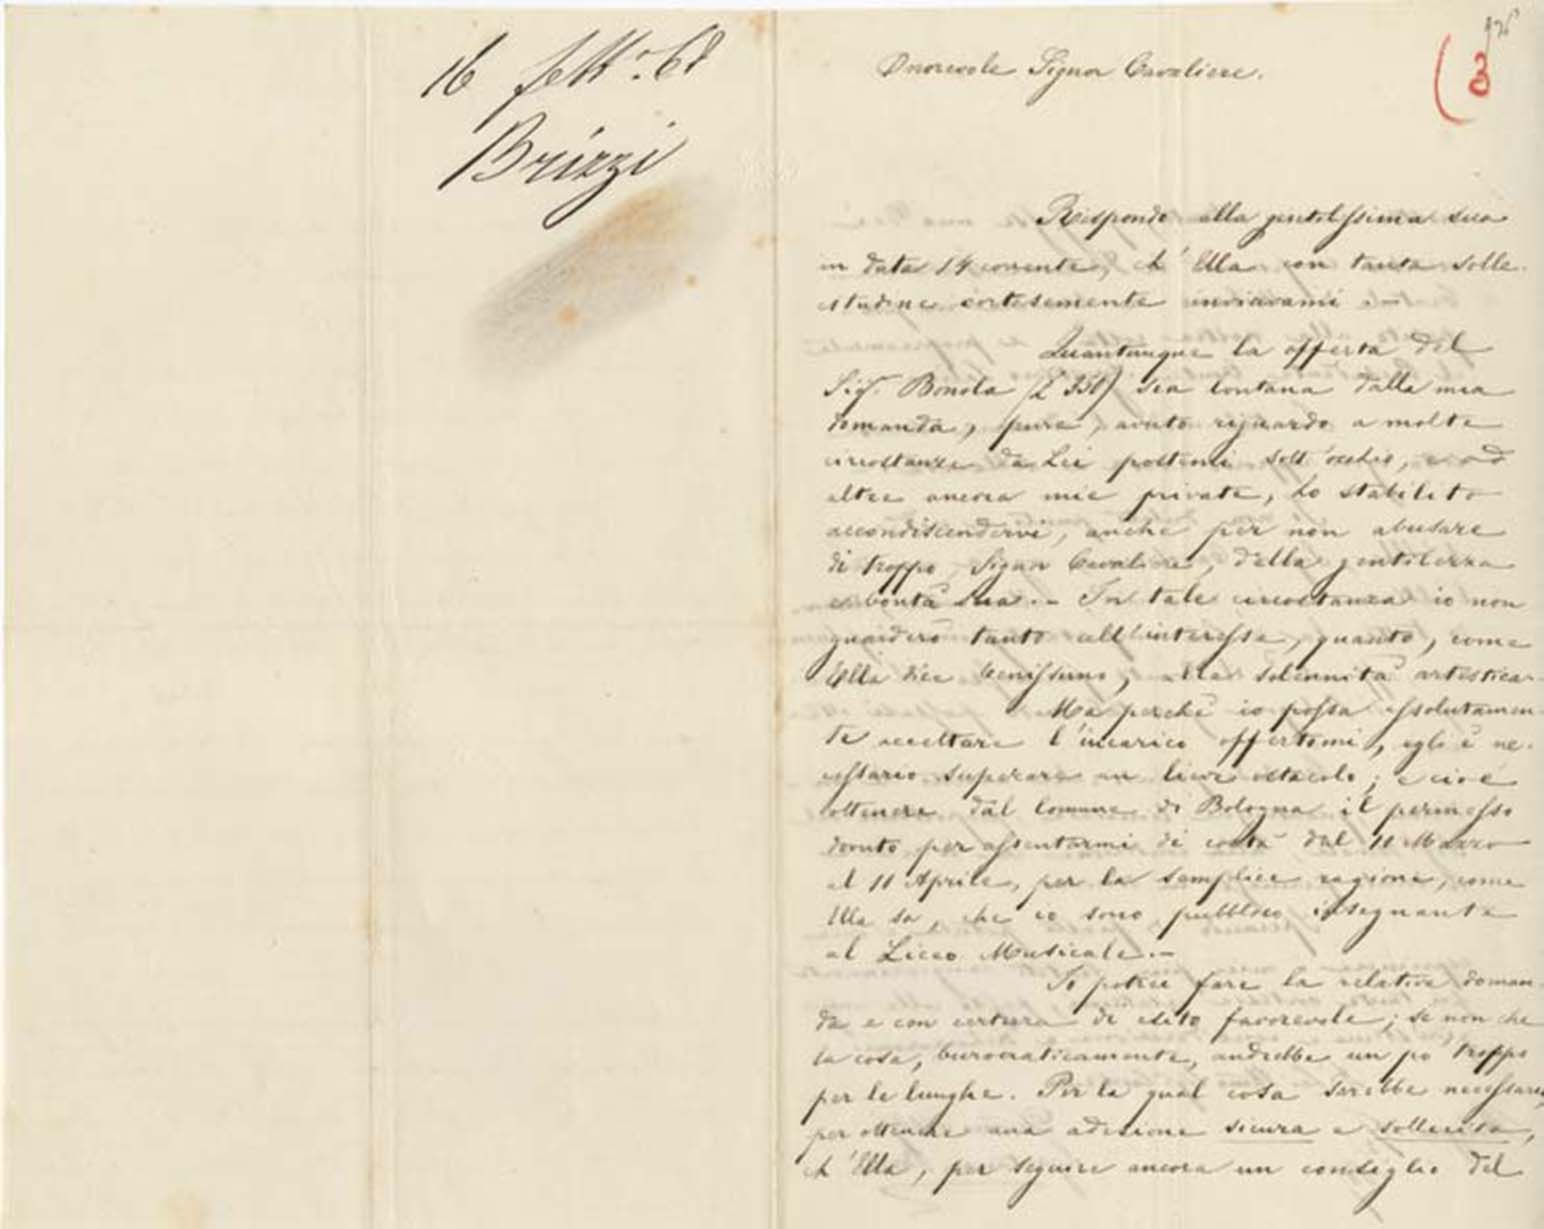 16 febb. 68
Brizzi
Onorevole Signor Cavaliere.
(3
Rispondo alla gentilissima sua
in data 14 corrente, ch'Ella con tanta solle-
citudine cortesemente inviavami.—
Quantunque la offerta del
Sig. Bonola (£ 350) sia lontana dalla mia
domanda, pure, avuto riguardo a molte
circostanze da Lei postemi sott'occhio, e ad
altre ancora mie private, ho stabilito
accondiscendervi, anche per non abusare
di troppo, Signor Cavaliere, della gentilezza
e bontà Sua.— In tale circostanza io non
guarderò tanto all'interesse, quanto, come
Ella dice benissimo, alla solennità artistica.
Ma perchè io possa assolutamen-
te accettare l'incarico offertomi, egli è ne-
cessario superare un lieve ostacolo; e cioè
ottenere dal Comune di Bologna il permesso
dovuto per assentarmi di costà dal 11 Marzo
al 11 Aprile, per la semplice ragione, come
Ella sa, che io sono pubblico insegnante
al Liceo Musicale.—
Io potrei fare la relativa doman-
da e con certezza di esito favorevole; se non che
la cosa, burocraticamente, andrebbe un po' troppo
per le lunghe. Per la qual cosa sarebbe necessario,
per ottenere una adesione sicura e sollecita,
ch'Ella, per seguire ancora un consiglio del